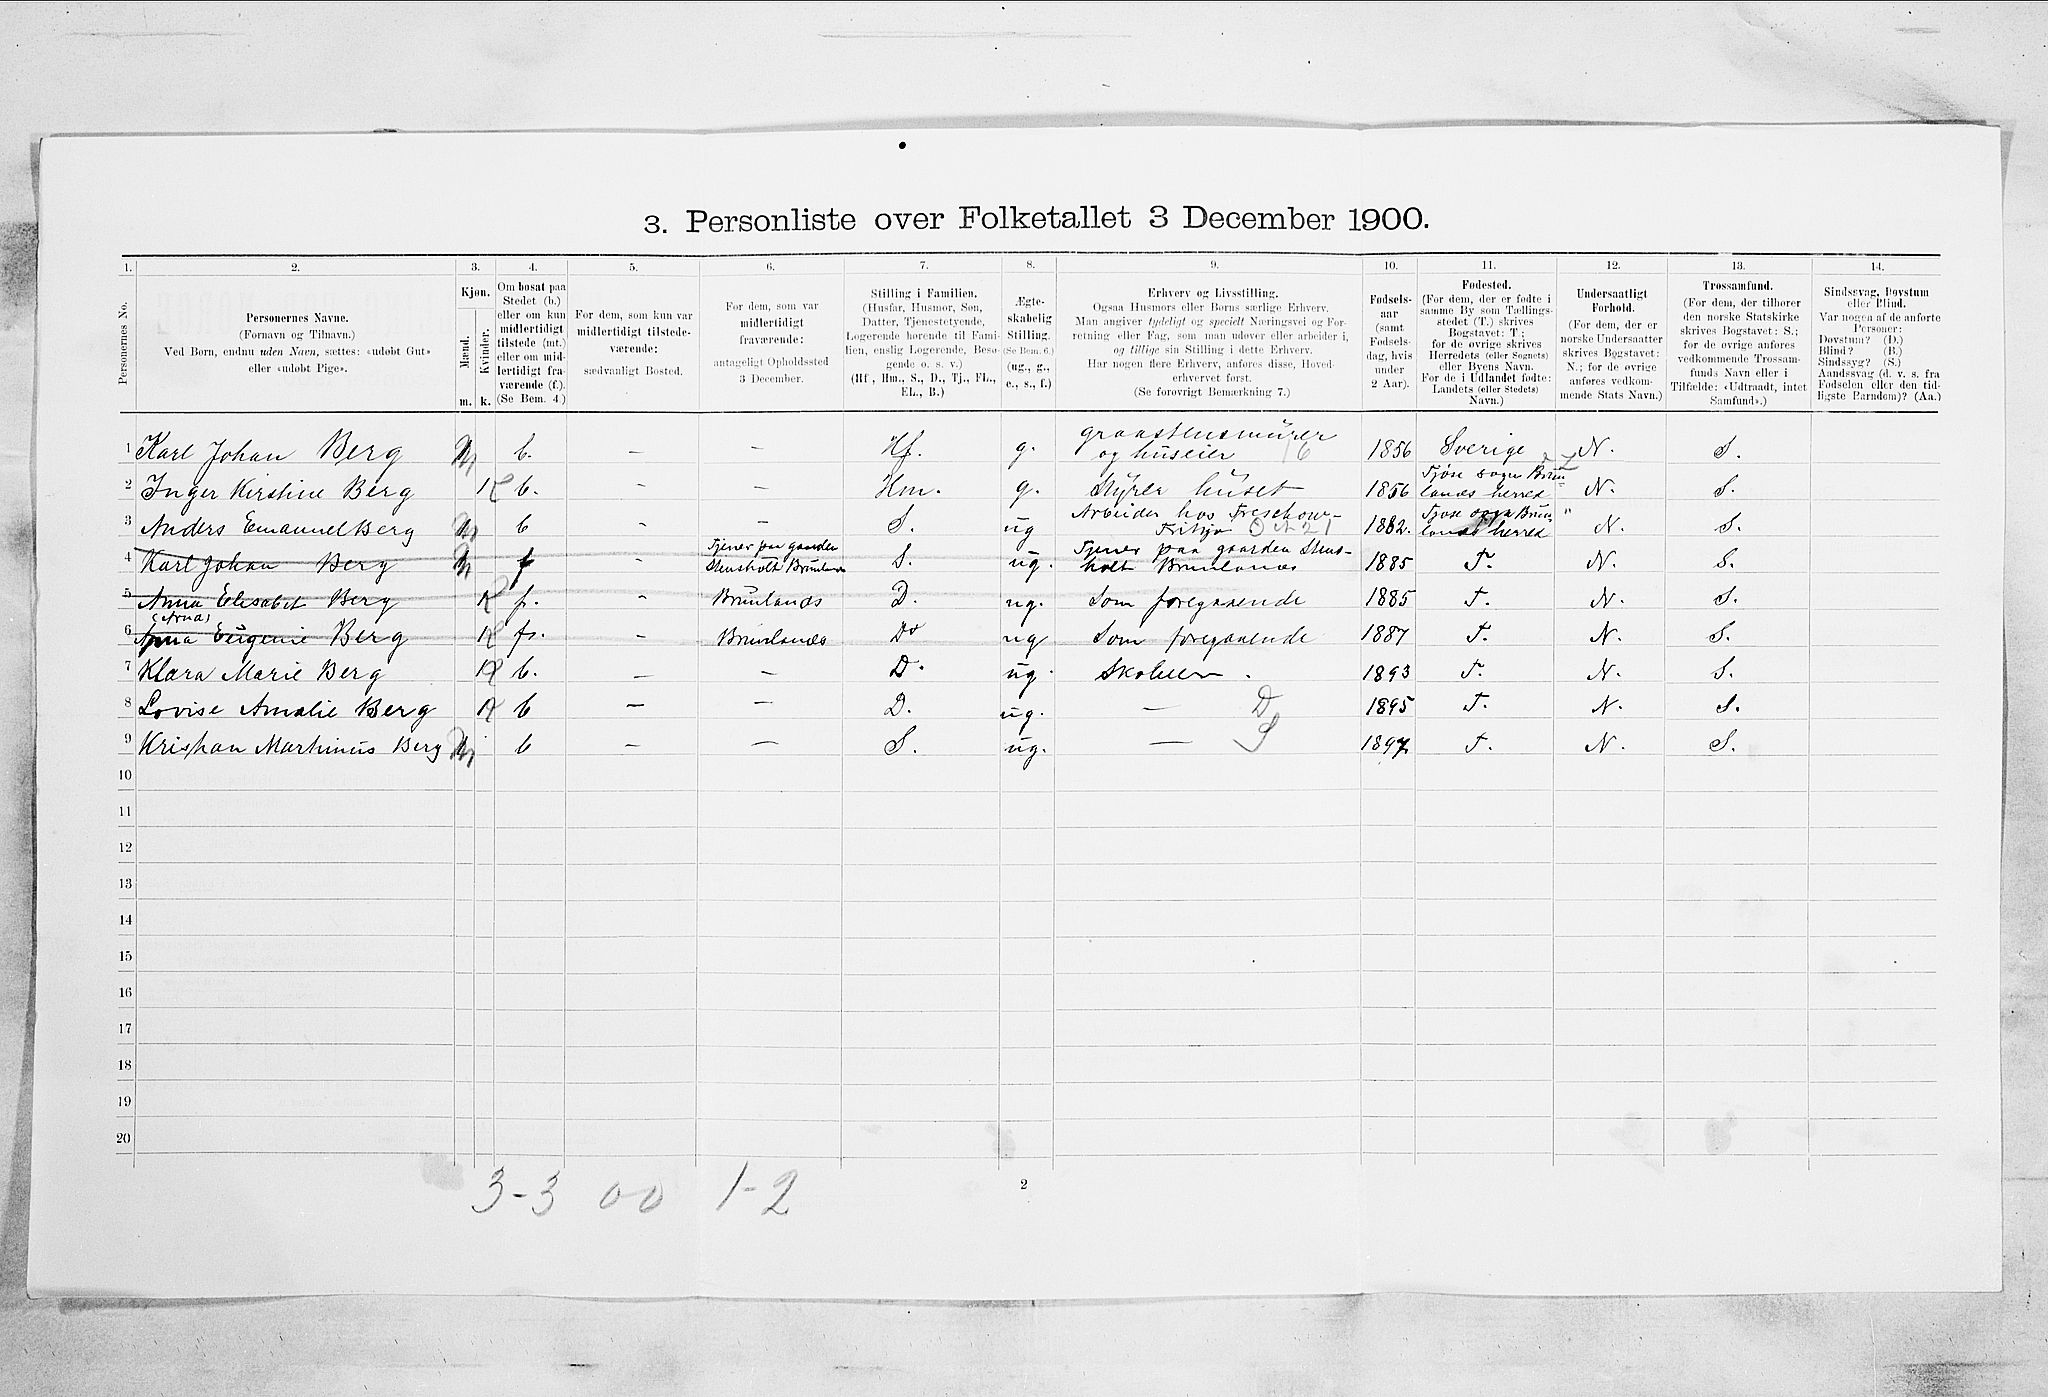 3. Personliste over Folketallet 3 December 1900.
1. 2. 3. 4. 5. 6. 7. 8. 9. 10. 11. 12. 13. 14.
Personernes No.
Personernes Navne.
(Fornavn og Tilnavn.)
Ved Børn, endnu uden Navn, sættes: «udøbt Gut»
eller «udøbt Pige».
Kjøn.
Mænd.
Kvinder.
m. k.
Om bosat paa
Stedet (b.)
eller om kun
midlertidigt
tilstede (mt.)
eller om mid-
lertidigt fra-
værende (f.).
(Se Bem. 4.)
For dem, som kun var
midlertidigt tilstede-
værende:
sædvanligt Bosted.
For dem, som var
midlertidigt
fraværende:
antageligt Opholdssted
3 December.
Stilling i Familien.
(Husfar, Husmor, Søn,
Datter, Tjenestetyende,
Logerende hørende til Fami-
lien, enslig Logerende, Besø-
gende o. s. v.)
(Hf., Hm., S., D., Tj., FL.,
EL., B.)
Ægte-
skabelig
Stilling.
(Se Bem. 6.)
(ug., g.,
e., s., f.)
Erhverv og Livsstilling.
Ogsaa Husmors eller Børns særlige Erhverv.
Man angiver tydeligt og specielt Næringsvei og For-
retning eller Fag, som man udøver eller arbeider i,
og tillige sin Stilling i dette Erhverv.
Har nogen flere Erhverv, anføres disse, Hoved-
erhvervet først.
(Se forøvrigt Bemærkning 7.)
Fødsels-
aar
(samt
Fødsels-
dag, hvis
under
2 Aar).
Fødested.
(For dem, der er fødte i
samme By som Tællings-
stedet (T.) skrives
Bogstavet: T.;
for de øvrige skrives
Herredets (eller Sognets)
eller Byens Navn.
For de i Udlandet fødte:
Landets (eller Stedets)
Navn.)
Undersaatligt
Forhold.
(For dem, der er
norske Undersaatter
skrives Bogstavet:
N.; for de øvrige
anføres vedkom-
mende Stats Navn.)
Trossamfund.
(For dem, der tilhører
den norske Statskirke
skrives Bogstavet: S.;
for de øvrige anføres
vedkommende Trossam-
funds Navn eller i
Tilfælde: «Udtraadt, intet
Samfund».)
Sindssvag, Døvstum
eller Blind.
Var nogen af de anførte
Personer:
Døvstum? (D.)
Blind? (B.)
Sindssyg? (S.)
Aandssvag (d. v. s. fra
Fødselen eller den tid-
ligste Barndom)? (Aa.)
1 Karl Johan Berg M b. – – Hf. g. graastensmürer
og huseier 16 1856 Sverige N. S.
2 Inger Kirstine Berg K b. – – Hm. g. Styrer hüset 1856 Tjøse sogn Brun-
lanes herred N. S.
3 Anders Emanuel Berg M b – – S. ug Arbeider hos Treschow-
Fritzø 1882. Tjose sogn Brun-
lanes herred N. S.
4 Karl Johan Berg M f – Tjener paa gaarden
Stensholt Brunlanes S. ug. Tjener paa gaarden Stens-
holt Brunlanes 1885 T. N. S.
5 Anna Elisabet Berg K f. – Brunlanes D. ug. Som foregaaende 1885 T. N. S.
(Anna)
6 Anna Eugenie Berg K f. Brunlanes D. ug Som foregaaende 1887 T. N. S.
7 Klara Marie Berg K b. – – D. ug. Skolelev. 1893 T. N. S.
8 Lovise Amalie Berg K b – – D. ug. – D 1895 T. N. S.
9 Kristian Martinius Berg M b – – S. ug. – S 1897 T. N. S.
10
11
12
13
14
15
16
17
18
19
20
3-3 00 1-2
2